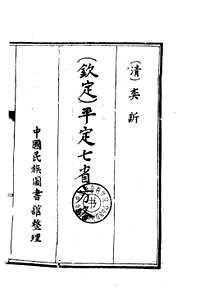 (清)奕訢
(欽定)平定七省方略
中國民族圖書館整理